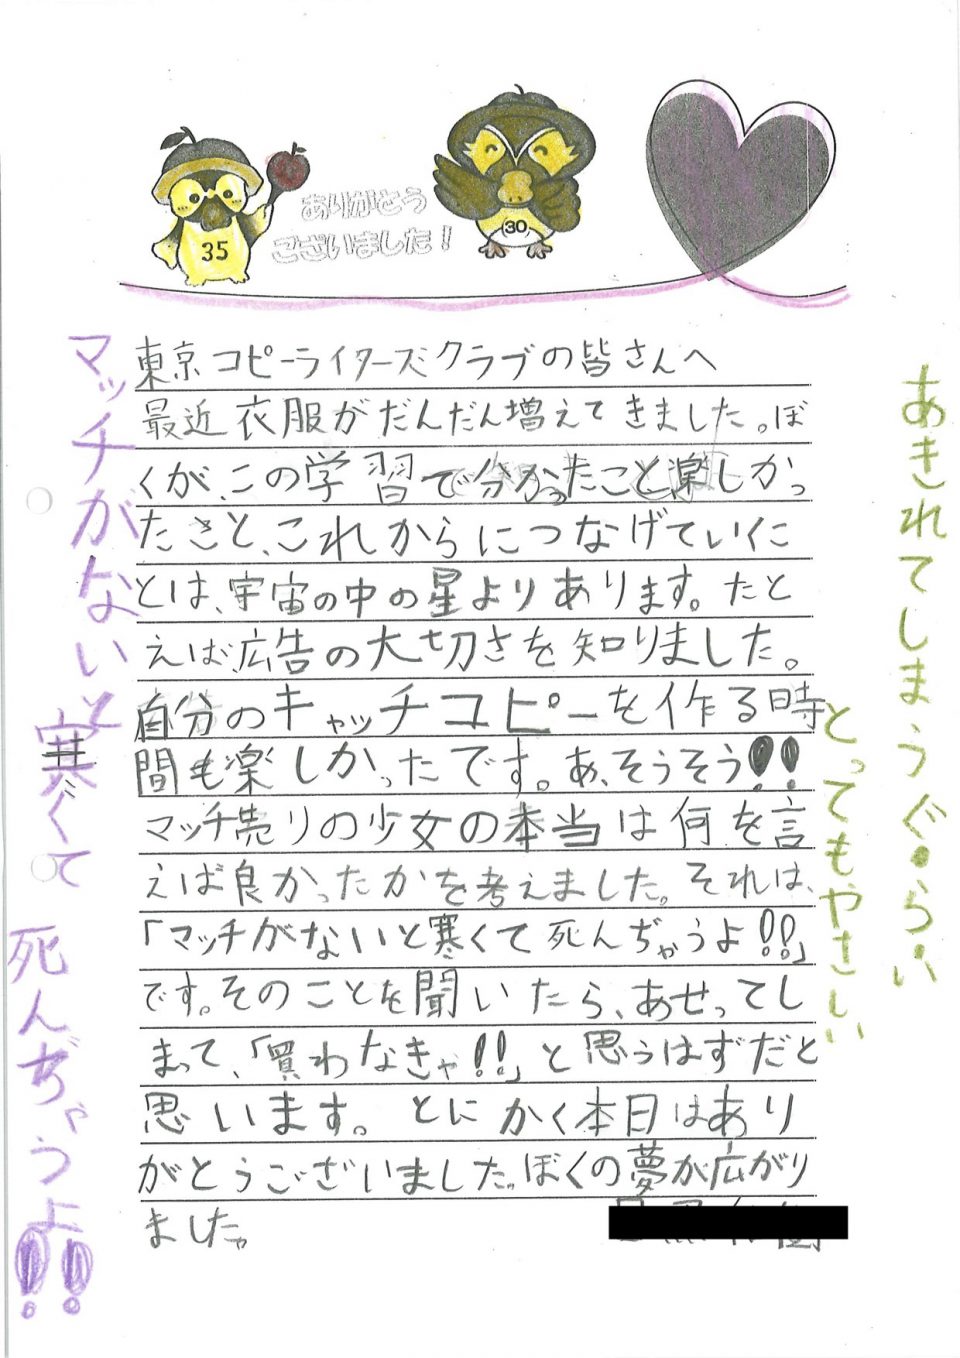 35
30
ありがとう
ございました!
東京コピーライターズクラブの皆さんへ
最近衣服がだんだん増えてきました。ぼ
くが、この学習で分かったこと、楽しかっ
たこと、これからにつなげていくこ
とは、宇宙の中の星よりあります。たと
えば、広告の大切さを知りました。
自分のキャッチコピーを作る時
間も楽しかったです。あ、そうそう!!
マッチ売りの少女の本当は何を言
えば良かったかを考えました。それは、
「マッチがないと寒くて死んぢゃうよ!!」
です。そのことを聞いたら、あせってし
まって、「買わなきゃ!!」と思うはずだと
思います。とにかく本日はあり
がとうございました。ぼくの夢が広がり
ました。
マッチがないと寒くて死んぢゃうよ!!
あきれてしまうぐらい
とってもやさしい